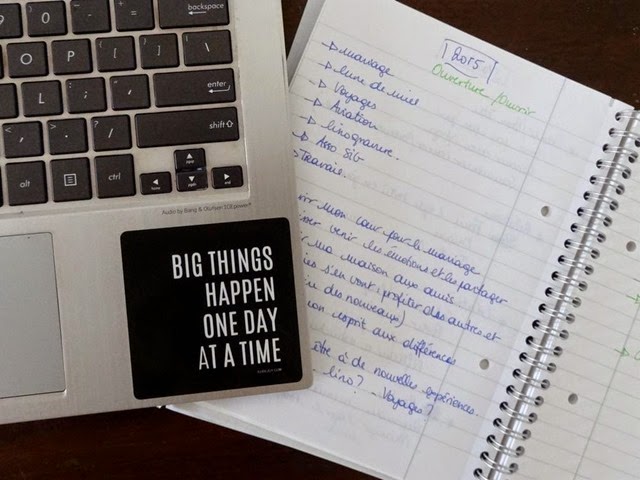 backspace
9
0
-
O
P
[
]
\
L
;
'
enter
<
,
>
.
?
/
shift
alt
ctrl
home
end
Audio by Bang & Olufsen ICEpower
BIG THINGS
HAPPEN
ONE DAY
AT A TIME
2015
Ouverture / Ouvrir
mariage
lune de miel
Voyages
Aviation
linogravure.
Asso SIG
Travail.
mon cœur pour le mariage
venir les émotions et les partager
ma maison aux amis
s'en vont : profiter des autres et
des nouveaux)
mon esprit aux différences
être à de nouvelles expériences.
lino? - Voyages?